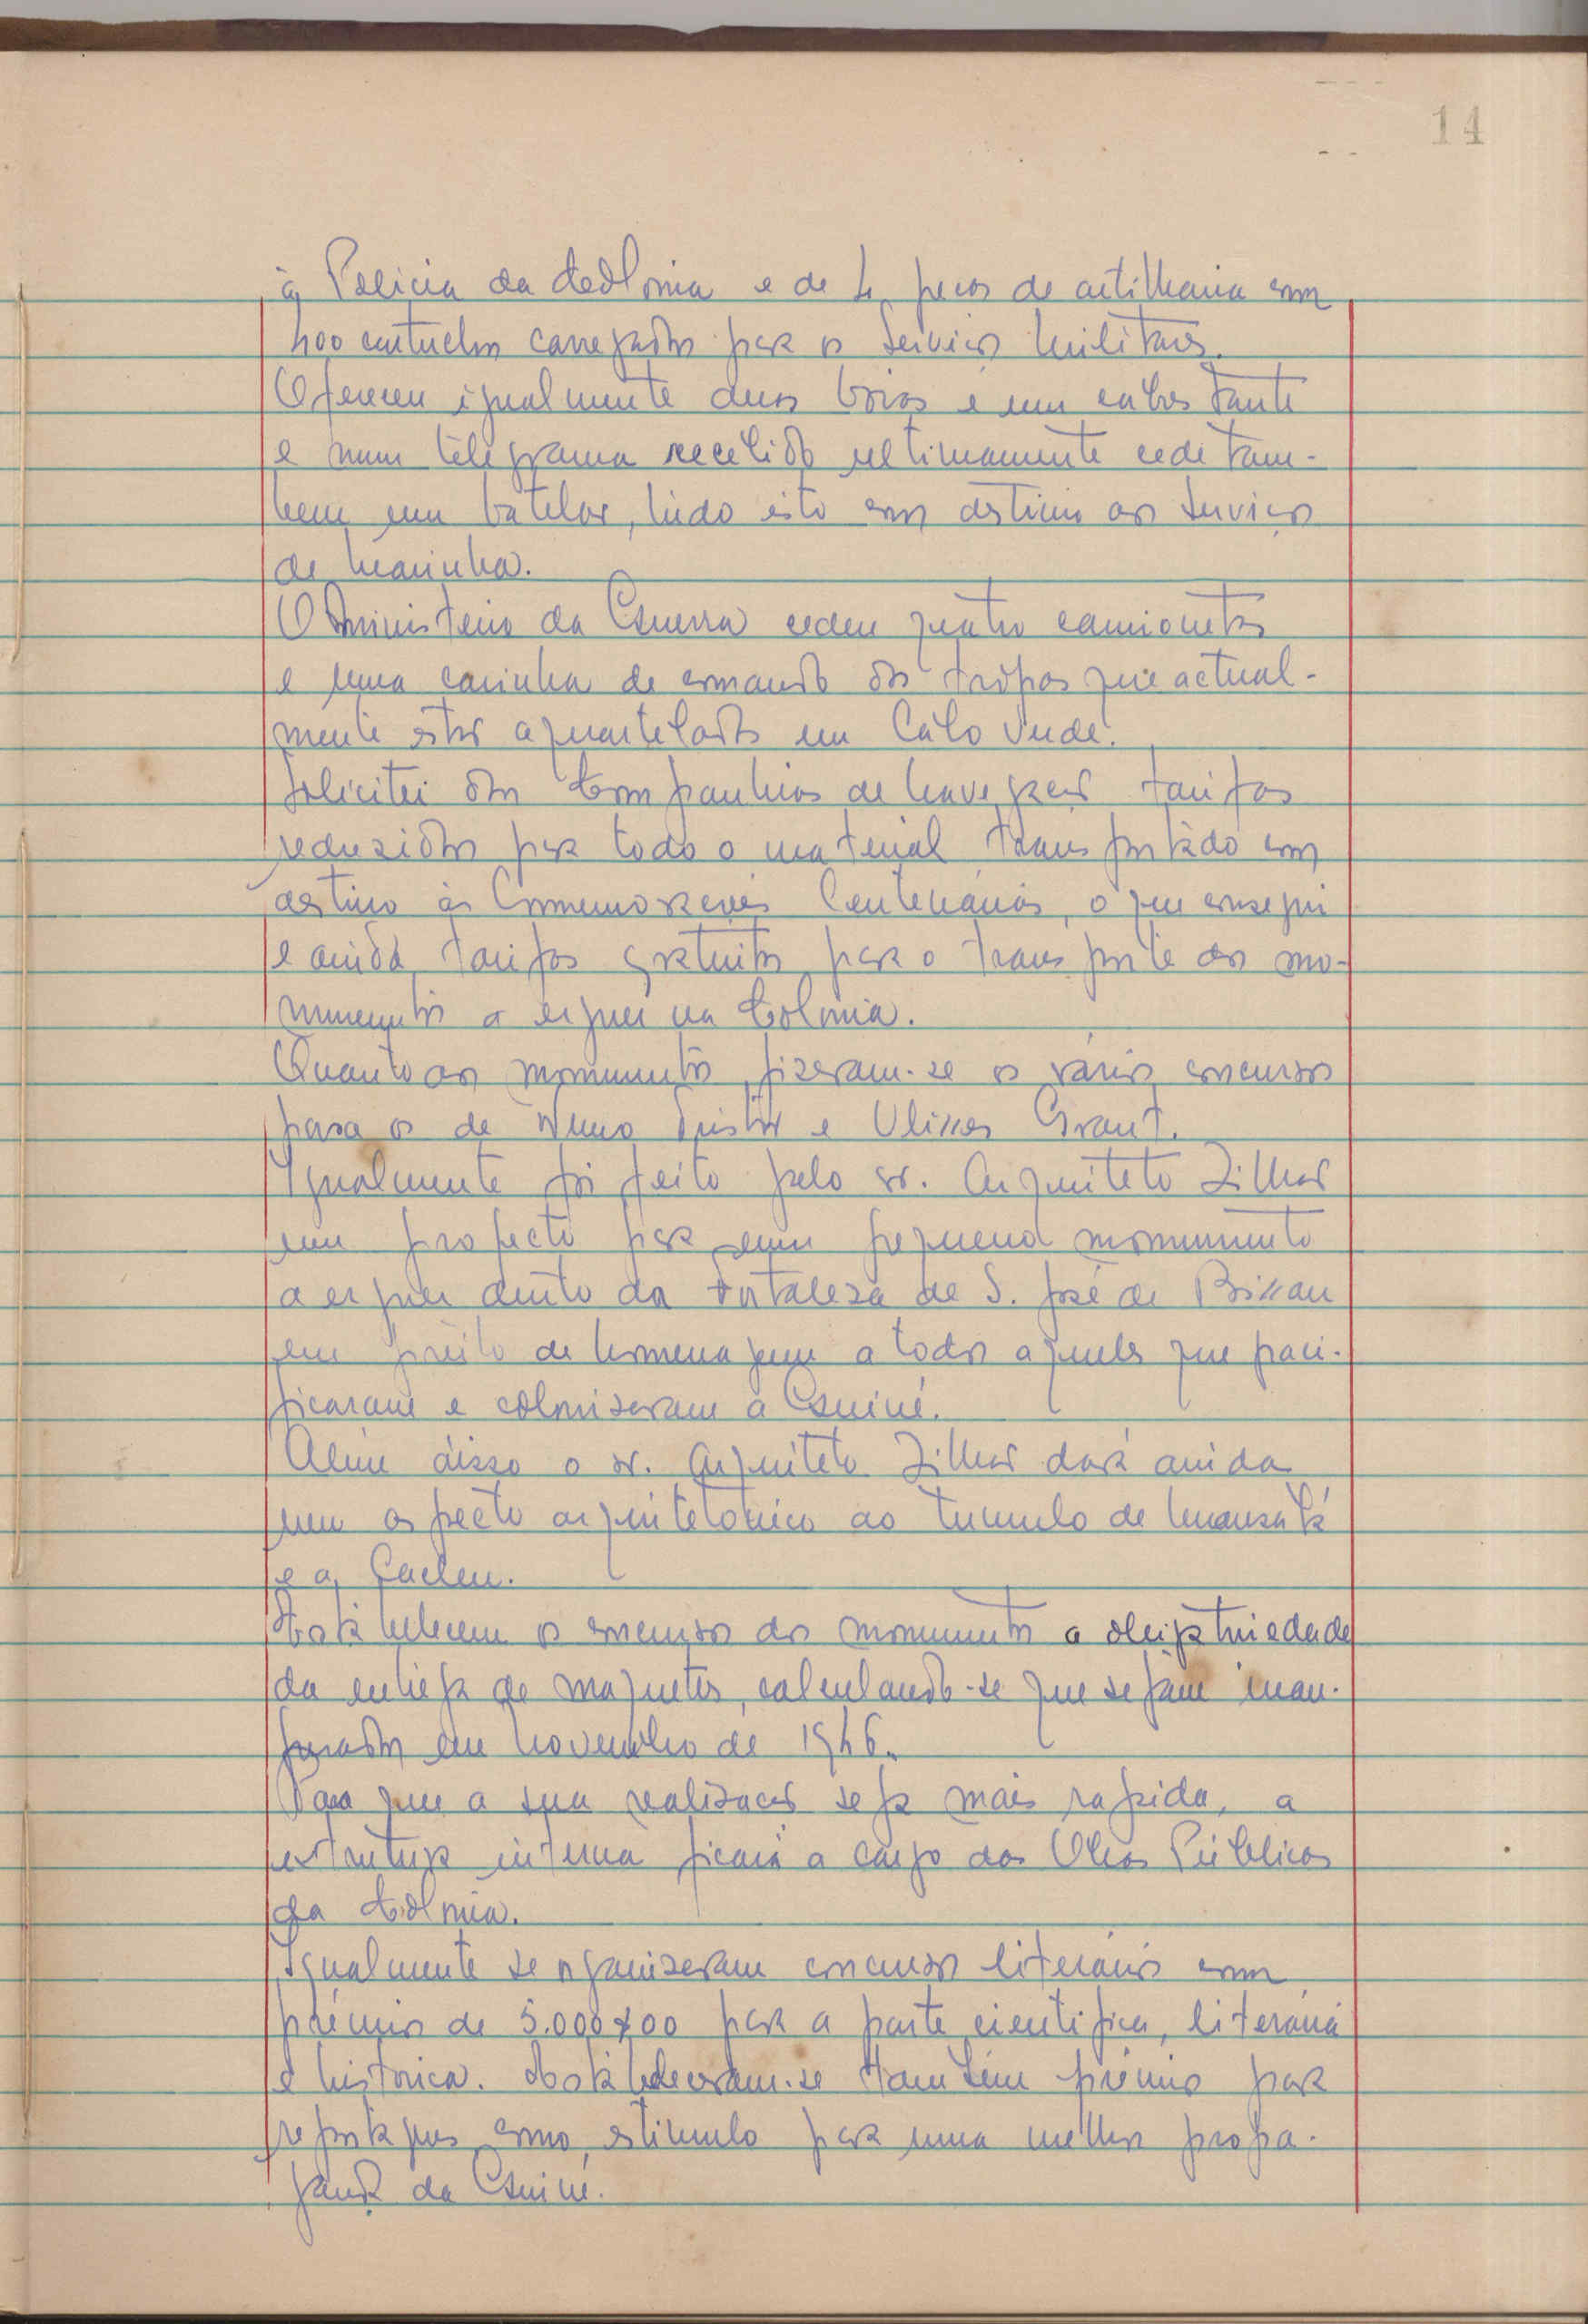 14
à Policia da Colonia e de 4 peças de artilharia com
400 cartuchos carregados para os Serviços Militares.
Ofereceu igualmente duas boias e um cabrestante
e num telegrama recebido ultimamente cede tam-
bem um batelão, tudo isto com destino aos Serviços
de Marinha.
O Ministerio da Guerra cedeu quatro camionetas
e uma carrinha de comando das tropas que actual-
mente estão aquarteladas em Cabo Verde.
Solicitei das Companhias de Navegação tarifas
reduzidas para todo o material transportado com
destino às Comemorações Centenárias, o que consegui
e ainda tarifas gratuitas para o transporte dos mo-
numentos a erguer na Colonia.
Quanto aos monumentos, fizeram-se os vários concursos
para os de Nuno Tristão e Ulisses Grant.
Igualmente foi feito pelo sr. Arquiteto Zilhão
um projecto para um pequeno monumento
a erguer dentro da Fortaleza de S. José de Bissau
em preito de homenagem a todos aqueles que paci-
ficaram e colonizaram a Guiné.
Alem disso o sr. Arquiteto Zilhão dará ainda
um aspecto arquitetónico ao tumulo de Mansabá
e a Cacheu.
Estabelecem os concursos dos monumentos a obrigatoriedade
da entrega de maquetes, calculando-se que sejam inau-
gurados em Novembro de 1946.
Para que a sua realização seja mais rapida, a
estrutura interna ficará a cargo das Obras Públicas
da Colónia.
Igualmente se organizaram concursos literários com
prémios de 5.000$00 para a parte cientifica, literária
e historica. Estabeleceram-se também prémios para
reportagens como estimulo para uma melhor propa-
ganda da Guiné.